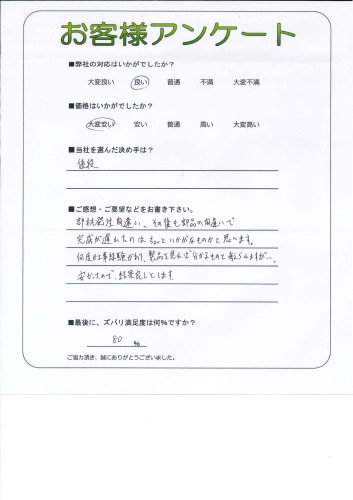 お客様アンケート
■弊社の対応はいかがでしたか？
大変良い 良い 普通 不満 大変不満
■価格はいかがでしたか？
大変安い 安い 普通 高い 大変高い
■当社を選んだ決め手は？
値段
■ご感想・ご要望などをお書き下さい。
部材発注間違い、その後も部品の間違いで
完成が遅れたのはちょっといかがなものかと思います。
何度か工事経験があり、製品を見れば分かるものと考えられますが…、
安かったので、結果良しとします
■最後に、ズバリ満足度は何％ですか？
80 ％
ご協力頂き、誠にありがとうございました。